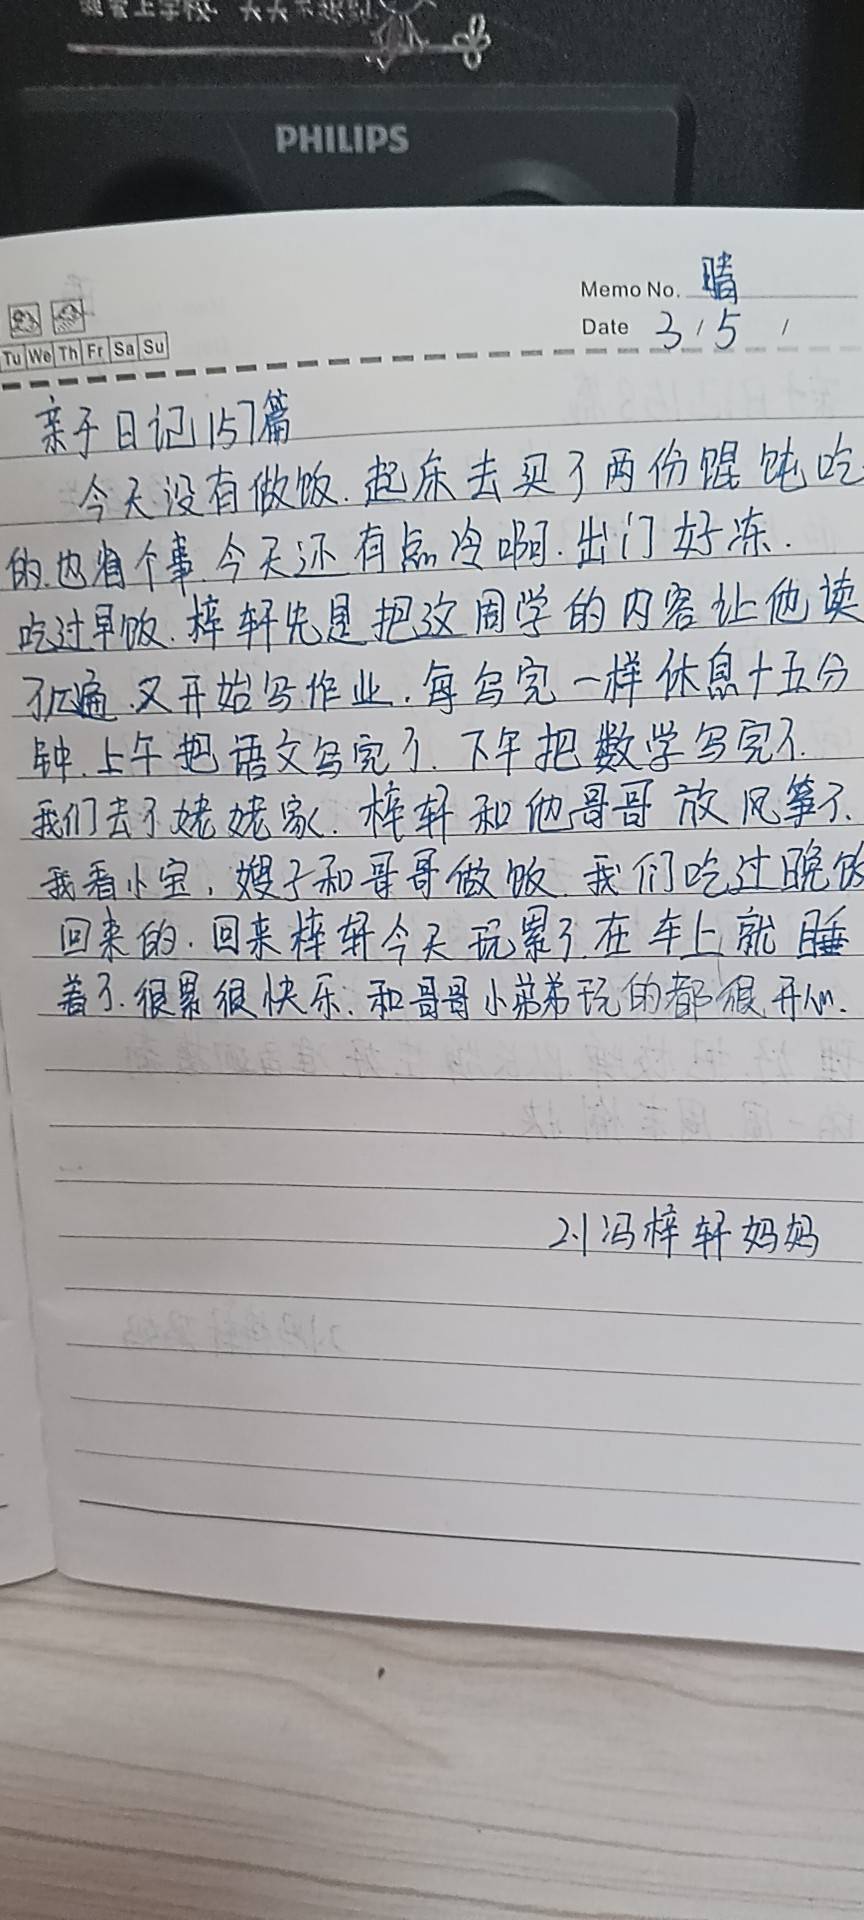 PHILIPS
Memo No. 晴
Date 3 / 5 /
Tu We Th Fr Sa Su
亲子日记157篇
今天没有做饭.起床去买了两份馄饨吃
的.也省个事.今天还有点冷啊.出门好冻.
吃过早饭.梓轩先是把这周学的内容让他读
了几遍.又开始写作业.每写完一样休息十五分
钟.上午把语文写完了.下午把数学写完了.
我们去了姥姥家.梓轩和他哥哥放风筝了.
我看小宝,嫂子和哥哥做饭.我们吃过晚饭
回来的.回来梓轩今天玩累了.在车上就睡
着了.很累很快乐.和哥哥小弟弟玩的都很开心.
2.1冯梓轩妈妈